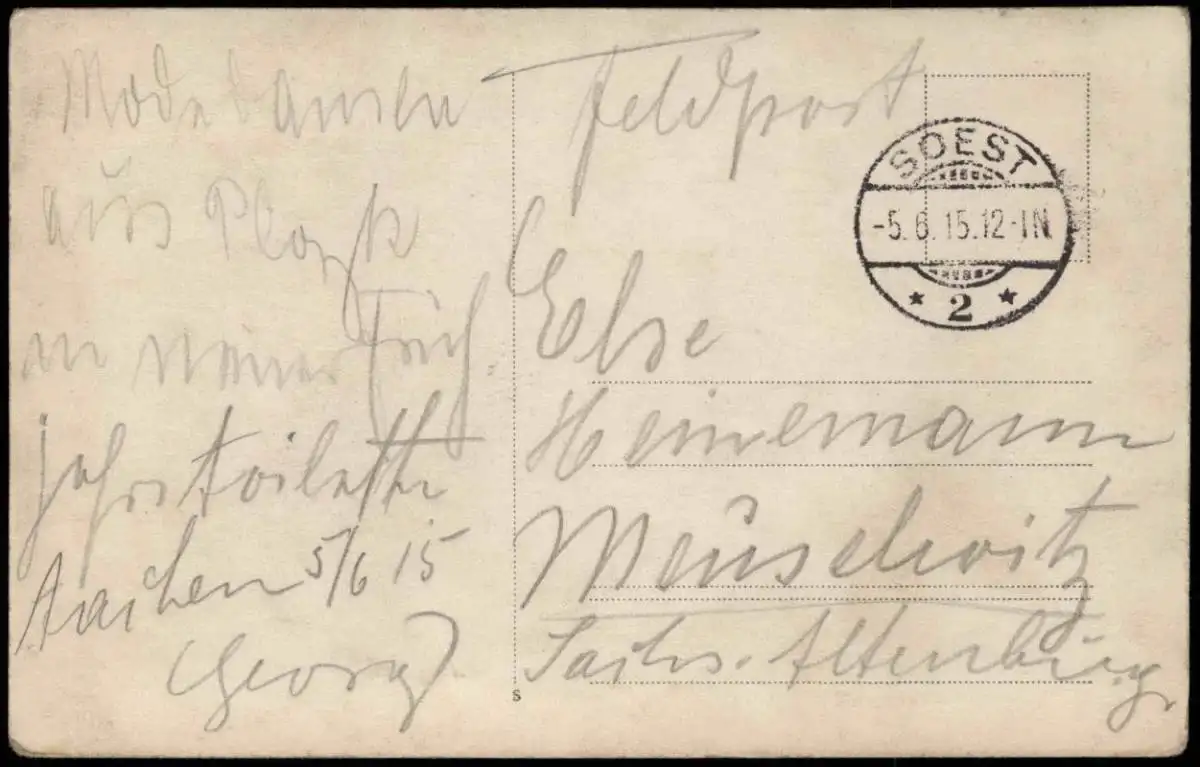 Modedamen
aus Plozk
in neuer Früh
jahrstoilette
Aachen 5/6 15
Georg
Feldpost
SOEST
-5.6.15.12-1N
* 2 *
Else
Heinemann
Meuselwitz
Sachs. Altenburg
s